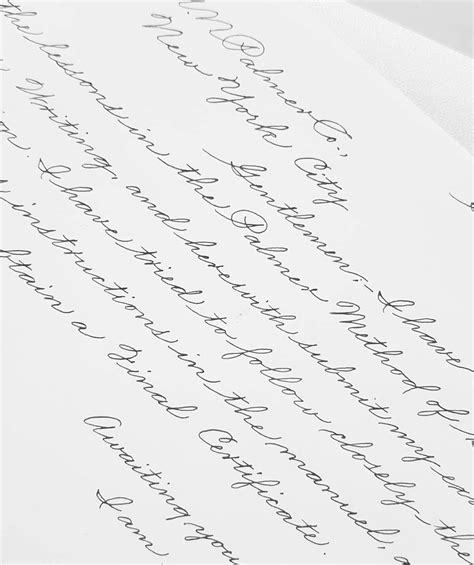 N. Palmer Co.,
New York City
Gentlemen:- I have
the lessons in the Palmer Method of
Writing, and herewith submit my exa
on. I have tried to follow closely, the
s instructions in the manual, a
btain a Final Certificate.
Awaiting you
I am